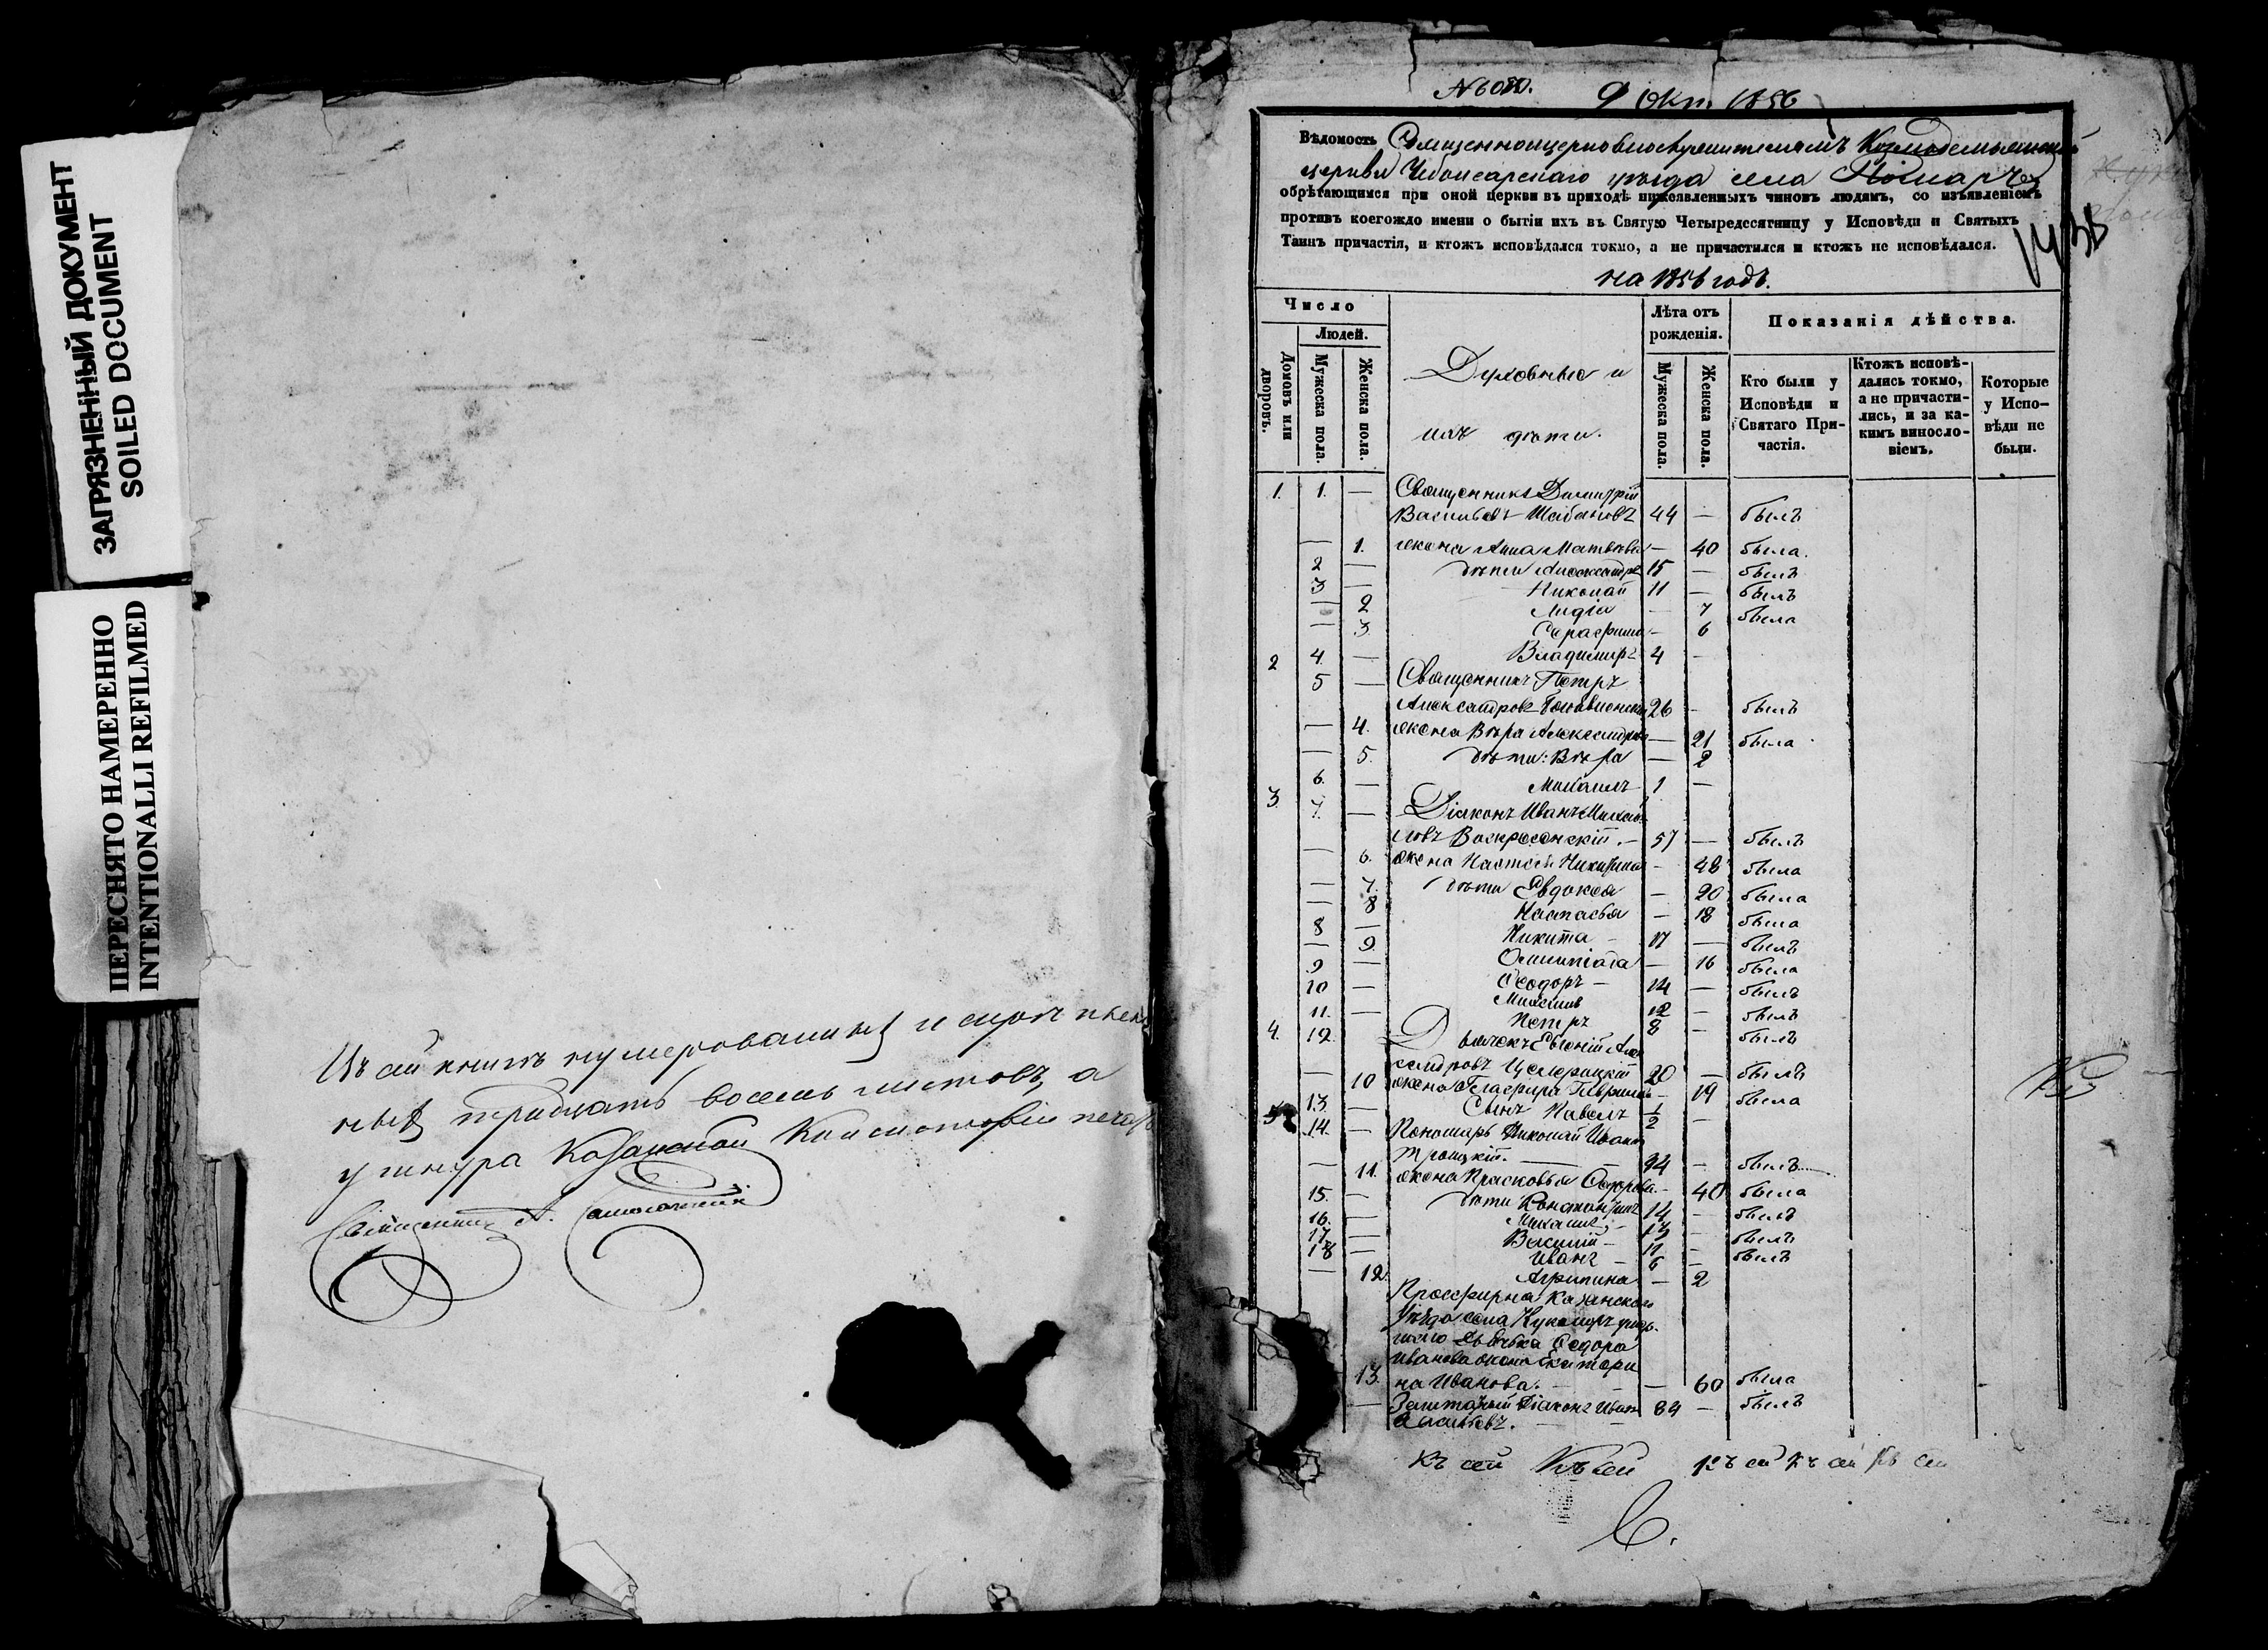 ЗАГРЯЗНЕННЫЙ ДОКУМЕНТ
SOILED DOCUMENT
ПЕРЕСНЯТО НАМЕРЕННО
INTENTIONALLI REFILMED
тридцать восемь листовъ, а
у шнура Казанской Консисторіи печать
Священникъ А.
9 Окт. 1856
Вѣдомость Священноцерковнослужителямъ Козмодемьянской
церкви Чебоксарскаго уѣзда села Помаръ
обрѣтающимся при оной церкви въ приходѣ нижеявленныхъ чиновъ людямъ, со изъявленіемъ
противъ коегождо имени о бытіи ихъ въ Святую Четыредесятницу у Исповѣди и Святыхъ
Таинъ причастія, и ктожъ исповѣдался токмо, а не причастился и ктожъ не исповѣдался.
на 1856 годъ.
Число
Людей.
Домовъ или дворовъ.
Мужеска пола.
Женска пола.
Духовные и
ихъ дѣти.
Лѣта отъ рожденія.
Мужеска пола.
Женска пола.
Показанія дѣйства.
Кто были у Исповѣди и Святаго При-частія.
Ктожъ исповѣ-дались токмо, а не причасти-лись, и за ка-кимъ виносло-віемъ.
Которые у Испо-вѣди не были.
1. 1. — Священникъ Димитрій
Васильевъ Шабановъ 44 — былъ
— 1. жена Анна Матвѣева — 40 была.
2 — дѣти Александръ 15 — былъ
3 — Николай 11 — былъ
— 2 Лидія — 7 была
— 3 Серафима — 6
4. — Владимиръ 4 —
2 5 — Священникъ Петръ
Александровъ 26 — былъ
— 4. жена Вѣра Александрова — 21 была
— 5. дѣти: Вѣра — 2
6. — Михаилъ 1 —
3. 7. — Діаконъ Иванъ Михай-
ловъ Воскресенскій. — 57 — былъ
— 6. жена Настасья Никитина — 48 была
— 7. дѣти Евдокея — 20 была
— 8 Настасья — 18 была
8 — Никита — 17 — былъ
— 9. Олимпіада — 16 была
9 — Ѳеодоръ — 14 — былъ
10 — 12 — былъ
11. — Петръ 8 — былъ
4. 12. Дьячекъ Евгеній Алек-
сандровъ 20 — былъ
— 10 жена Глафира Гаврилова — 19 была
13. — Сынъ Павелъ 1/2 —
5 14. — Пономарь Николай Иванов
Троицкій. — 34 — былъ
— 11. жена Прасковья Ѳедорова — 40 была
15. — дѣти Константинъ 14 — былъ
16. — Михаилъ, — 13 — былъ
17 — Василій — 11 — былъ
18 — Иванъ — 6 —
— 12. Агрипина — 2
Просфирня Казанскаго
Уѣзда села Кукморъ
Дьячка Ѳедора
Иванова жена Екатери
13. на Иванова. — — 60 была
— Заштатный Діаконъ Иванъ 84 — былъ
Васильевъ. —
Къ сей Къ сей Къ сей Къ сей Къ сей